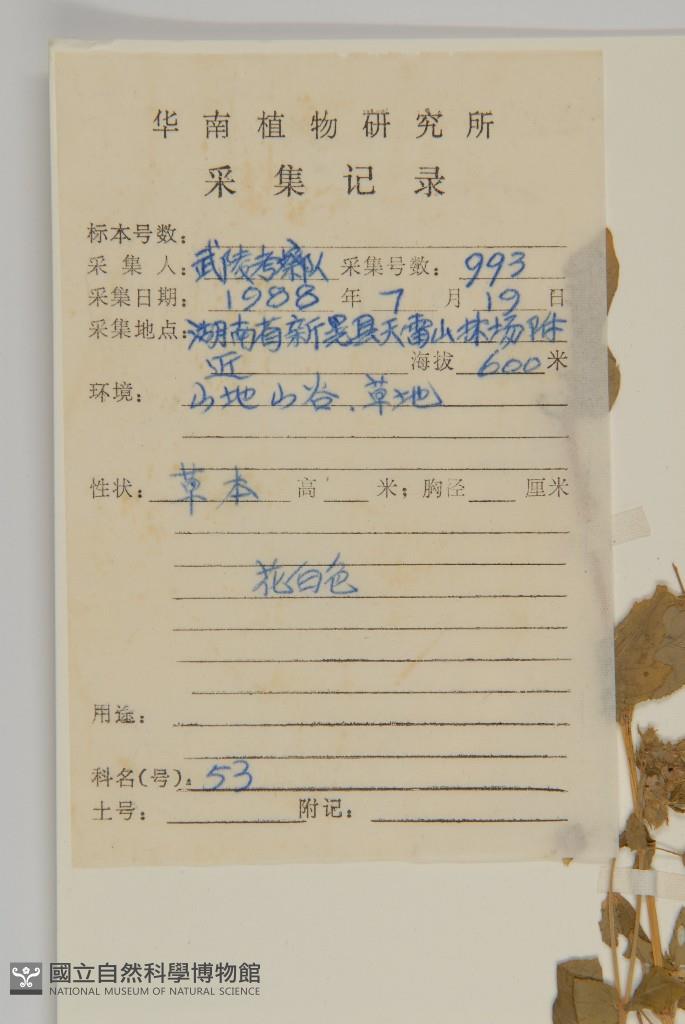 华南植物研究所
采集记录
标本号数：
采集人：武陵考察队 采集号数：993
采集日期：1988年7月19日
采集地点：湖南省新晃县天雷山林场附
近 海拔600米
环境：山地山谷、草地
性状：草本 高 米；胸径 厘米
花白色
用途：
科名(号)：53
土号： 附记：
國立自然科學博物館
NATIONAL MUSEUM OF NATURAL SCIENCE